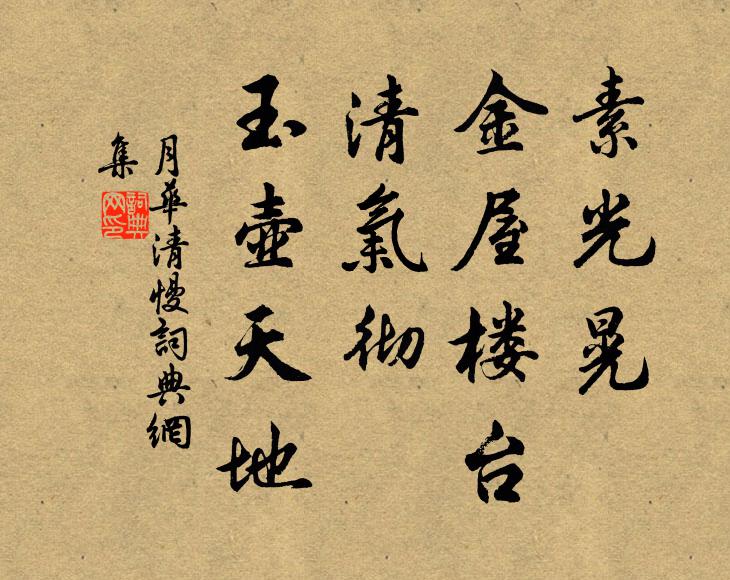 素光晃
金屋楼台
清氣彻
玉壺天地
月華清慢詞典網
集
詞典
网印